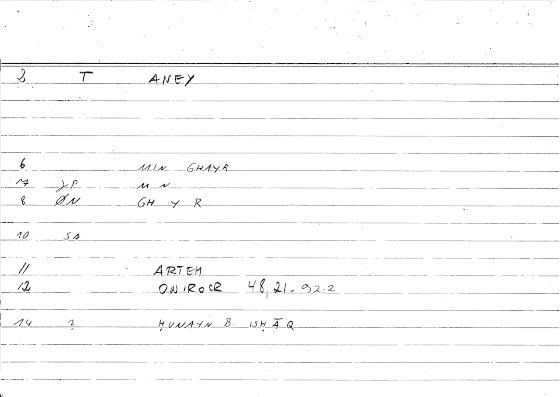 2 T ANEY
6 MIN GHAYR
7 YP M N
8 ØN GH Y R
10 SA
11 ARTEM
12 ONIROCR 48,21-92.2
14 2 ḤUNAYN B. ISḤĀQ